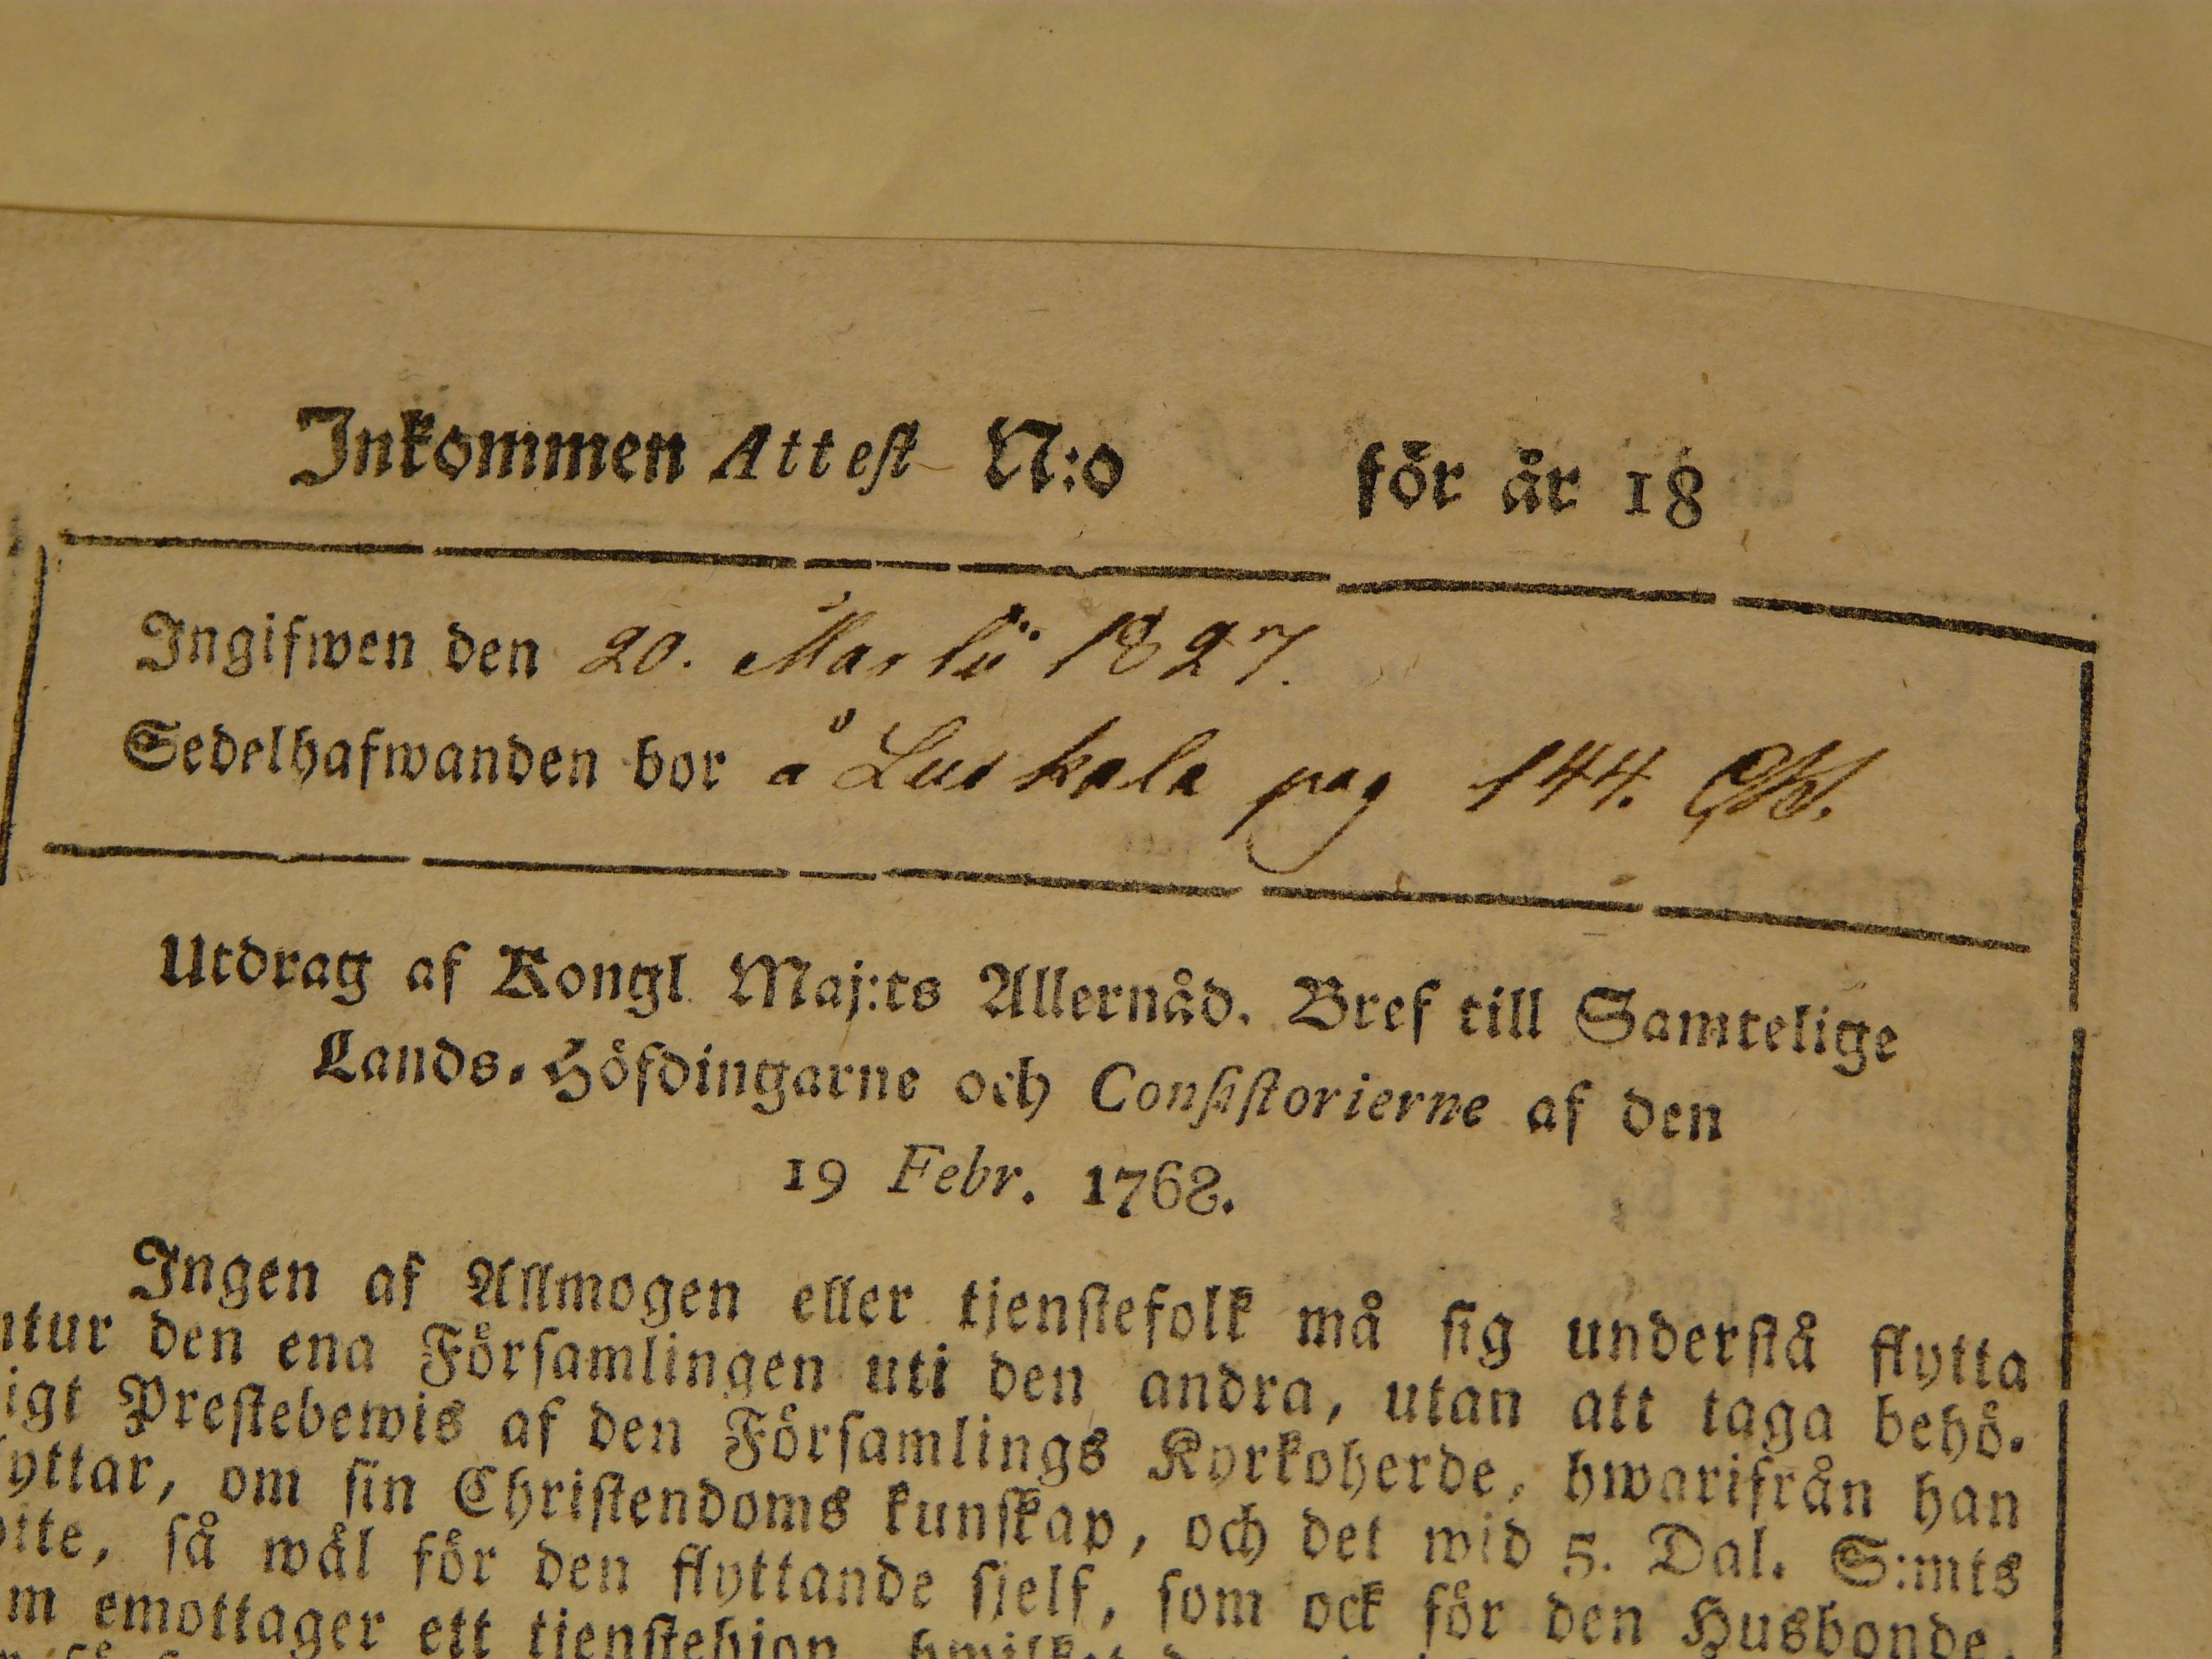 Inkommen Attest N:o för år 18
Ingifwen den 20. Martii 1827.
Sedelhafwanden bor å Luskala pag 144.
Utdrag af Kongl. Maj:ts Allernåd. Bref till Samtelige
Lands-Höfdingarne och Consistorierne af den
19 Febr. 1768.
Ingen af Allmogen eller tjenstefolk må sig understå flytta
utur den ena Församlingen uti den andra, utan att taga behö-
igt Prestebewis af den Församlings Kyrkoherde, hwarifrån han
yttar, om sin Christendoms kunskap, och det wid 5. Dal. S:mts
ite, så wäl för den flyttande sjelf, som ock för den Husbonde,
m emottager ett tjenstehjon